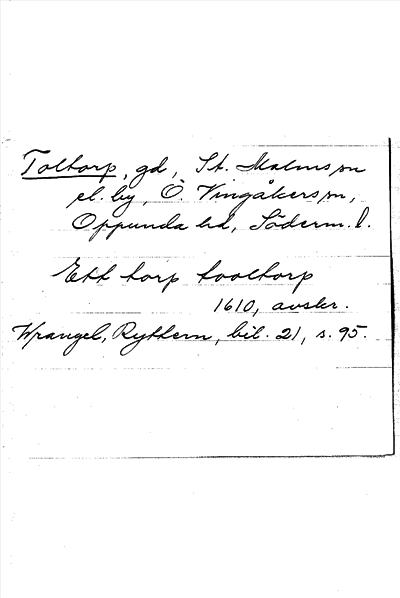 Toltorp, gd, St. Malms sn
el. by, Ö. Vingåkers sn,
Oppunda hd, Söderm. l.
Ett torp tooltorp
1610, avskr.
Wrangel, Rythern, bil. 21, s. 95.